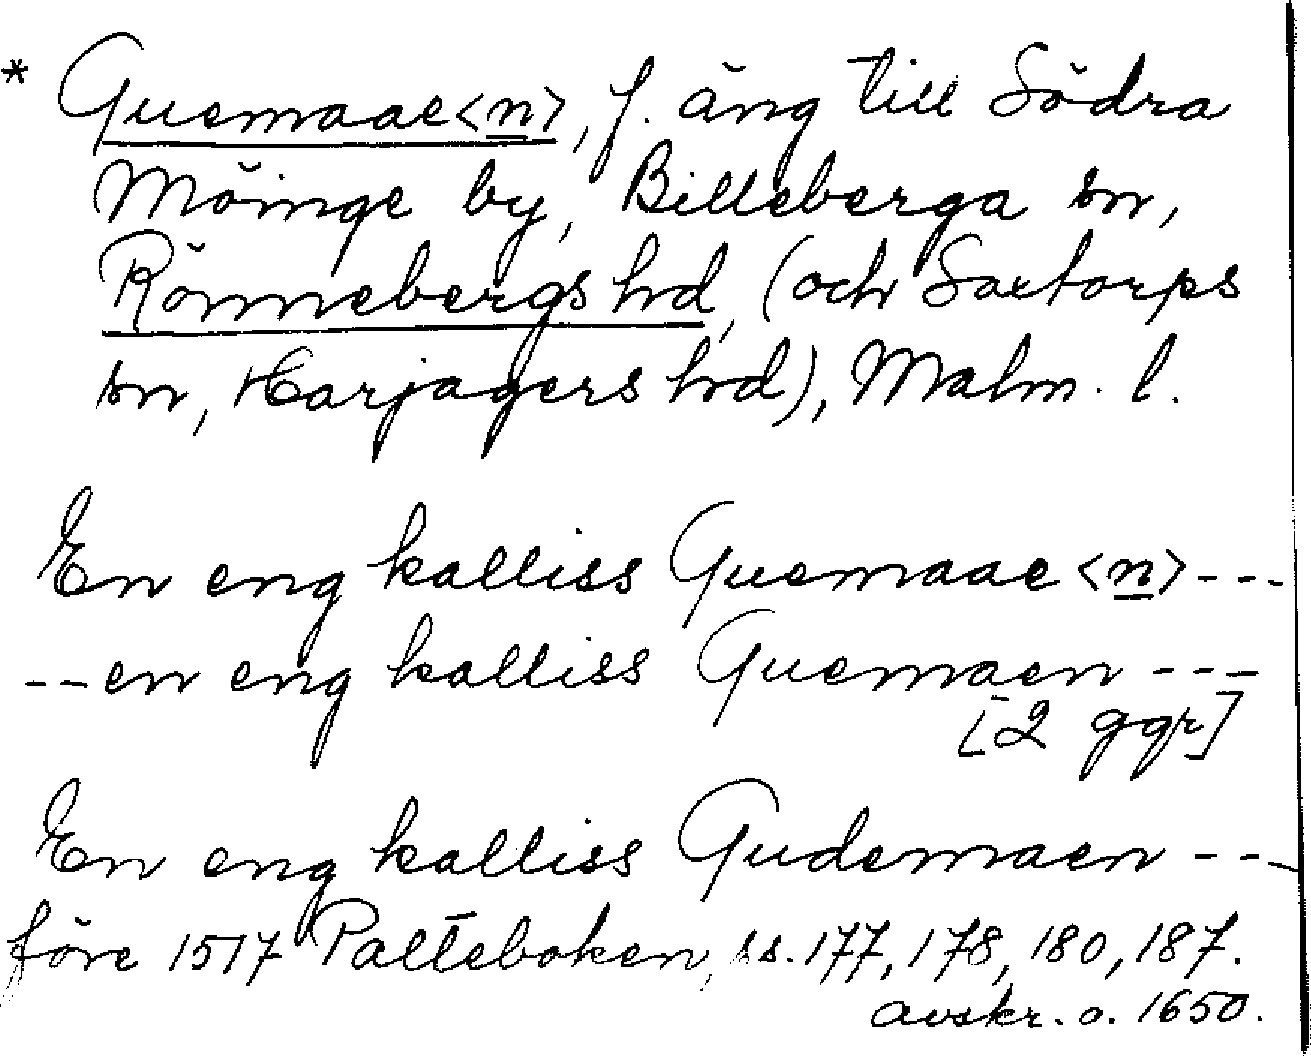 * Guemaae<n>, f. äng till Södra
Möinge by, Billeberga sn,
Rönnebergs hd, (och Saxtorps
sn, Harjagers hd), Malm. l.
En eng kalliss Guemaae<n>---
--en eng kalliss Guemaen---
[2 ggr]
En eng kalliss Gudemaen---
före 1517 Palteboken, ss. 177, 178, 180, 187.
avskr. o. 1650.